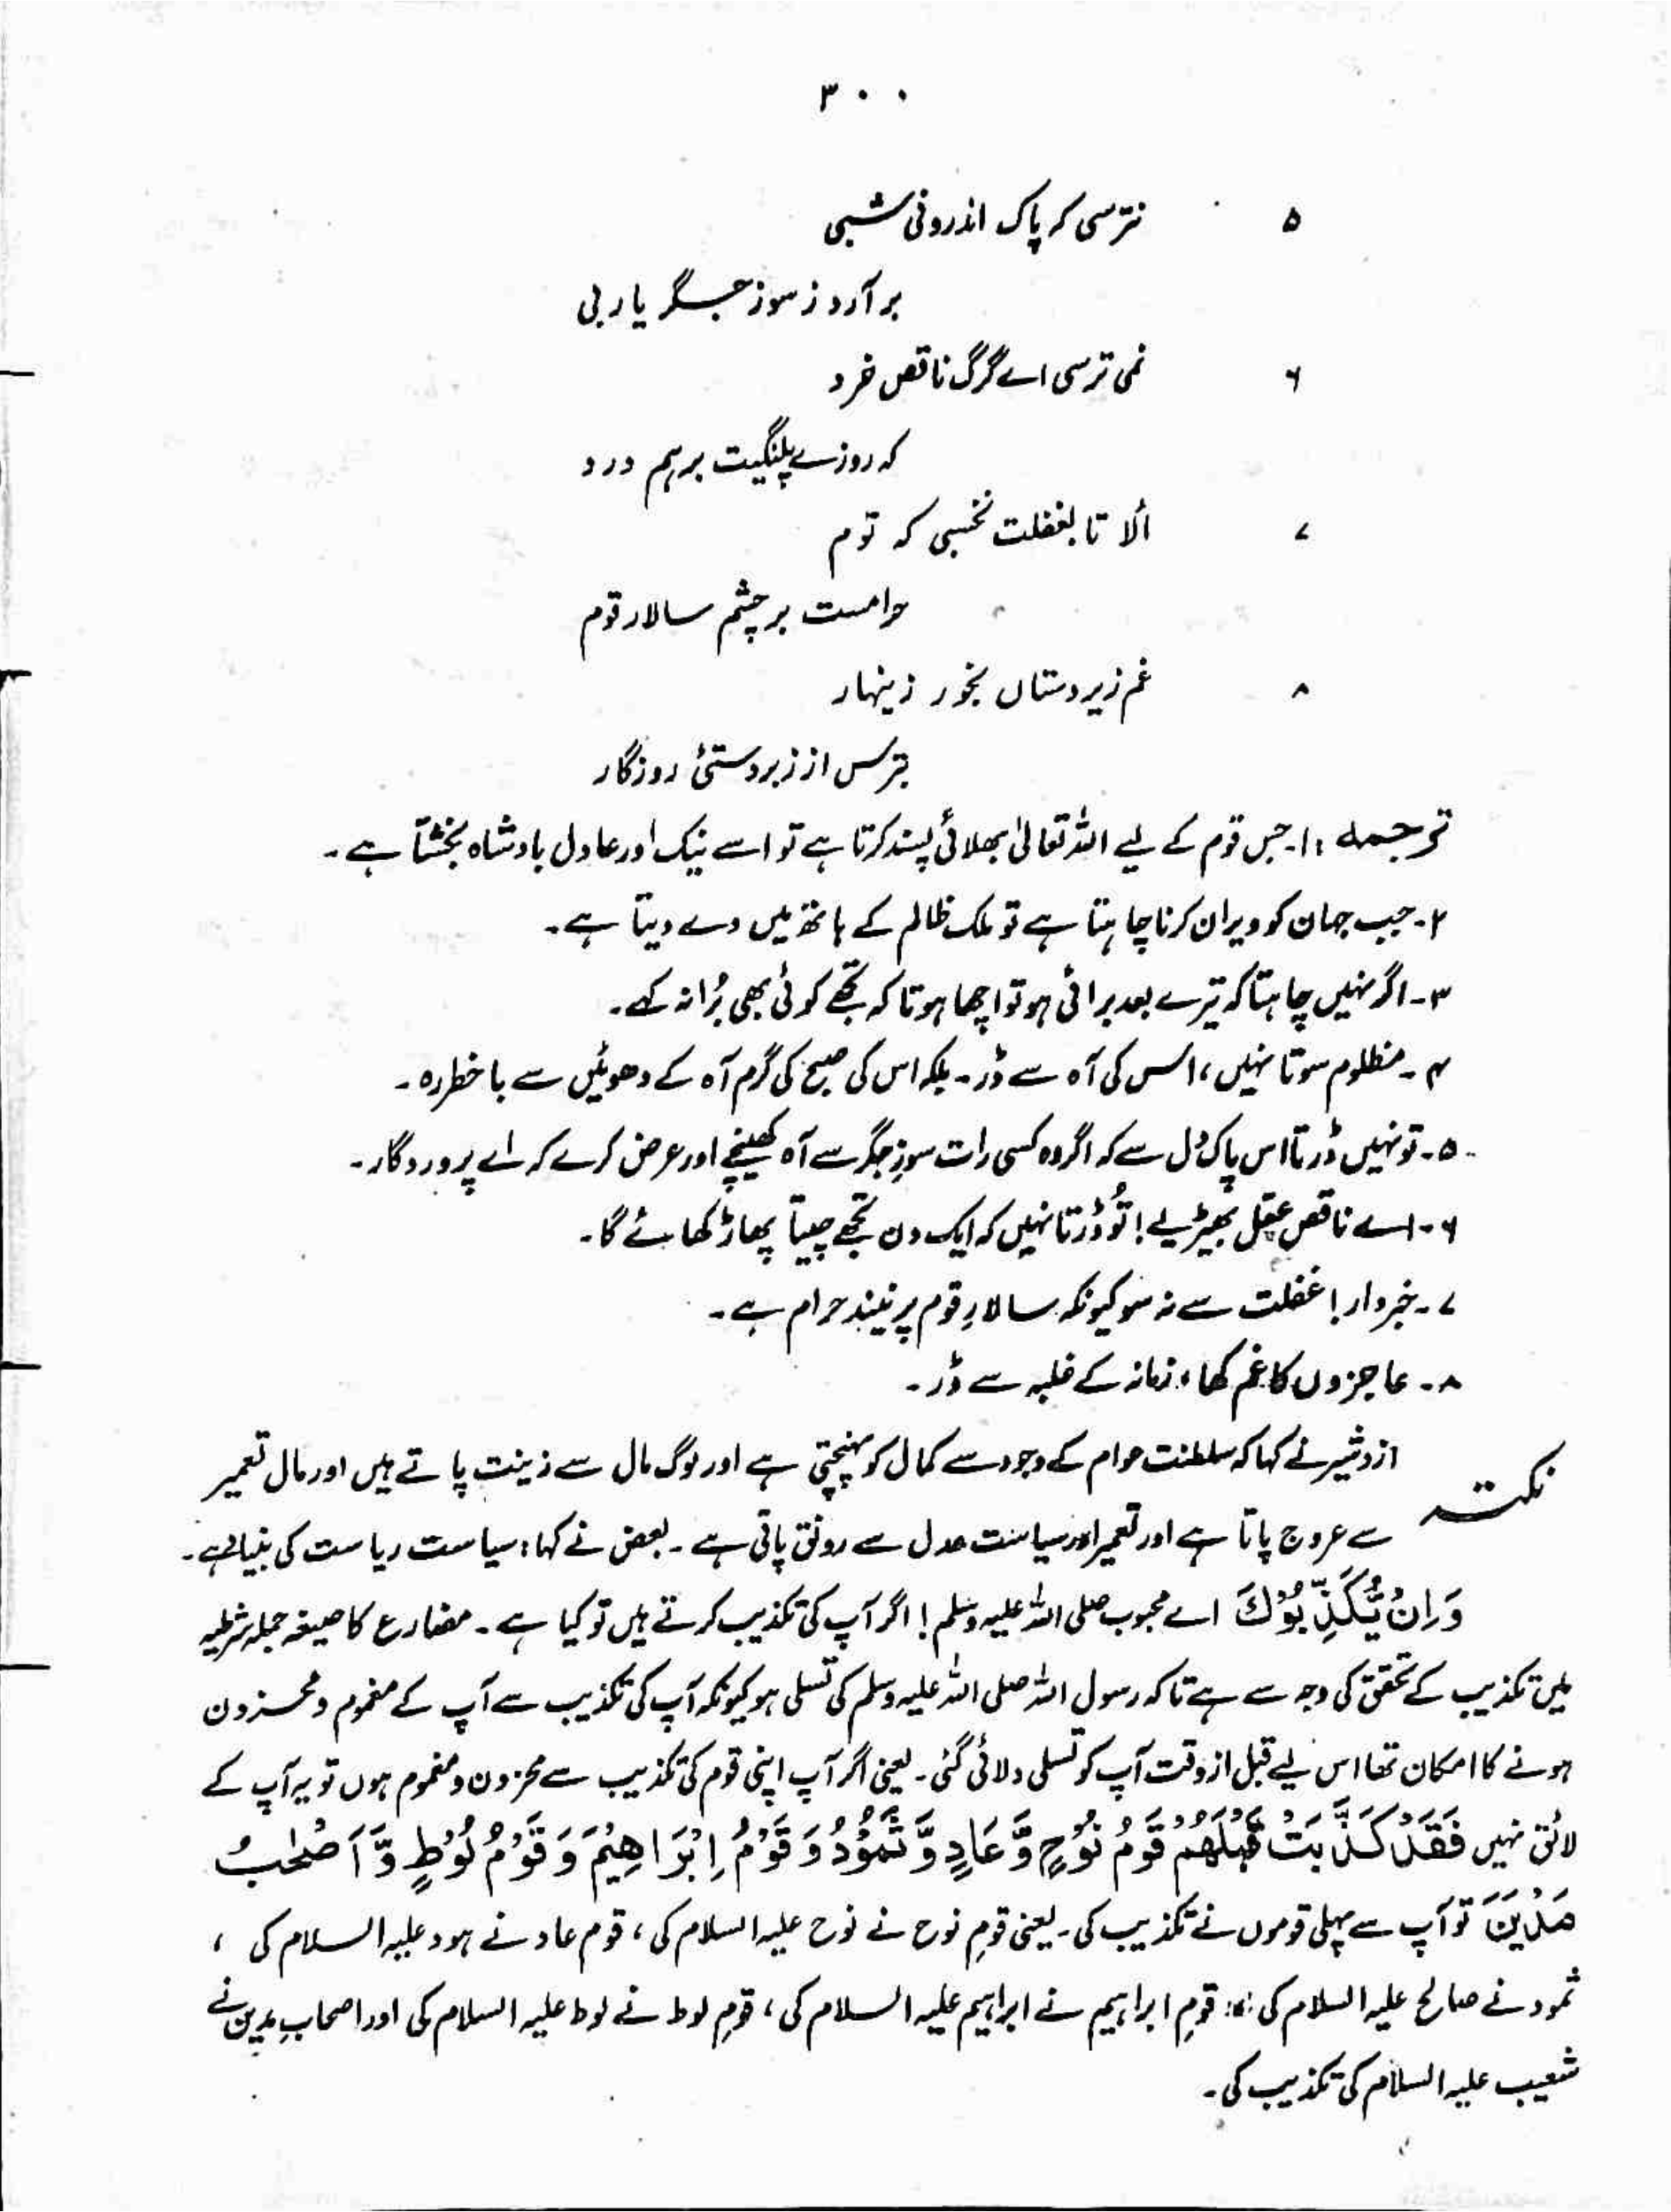 ۳۰۰
۵ نترسی کہ پاک اندرونی شبی
بر آرد ز سوز جگر یا ربی
۶ نمی ترسی اے گرگ ناقص خرد
کہ روزے پلنگیت برہم درد
۷ الا تا بغفلت نخسپی کہ نوم
حرامست بر چشم سالار قوم
۸ غم زیردستاں بخور زینہار
بترس از زبردستئ روزگار
ترجمہ : ۱۔ جس قوم کے لیے اللہ تعالیٰ بھلائی پسند کرتا ہے تو اسے نیک اور عادل بادشاہ بخشتا ہے۔
۲۔ جب جہان کو ویران کرنا چاہتا ہے تو ملک ظالم کے ہاتھ میں دے دیتا ہے۔
۳۔ اگر نہیں چاہتا کہ تیرے بعد برائی ہو تو اچھا ہوتا کہ تجھے کوئی بھی بُرا نہ کہے۔
۴۔ مظلوم سوتا نہیں، اس کی آہ سے ڈر۔ بلکہ اس کی صبح کی گرم آہ کے دھوئیں سے باخطر رہ۔
۵۔ تو نہیں ڈرتا اس پاک دل سے کہ اگر وہ کسی رات سوزِ جگر سے آہ کھینچے اور عرض کرے کہ اے پروردگار۔
۶۔ اے ناقص عقل بھیڑیے! تُو ڈرتا نہیں کہ ایک دن تجھے چیتا پھاڑ کھائے گا۔
۷۔ خبردار! غفلت سے نہ سو کیونکہ سالارِ قوم پر نیند حرام ہے۔
۸۔ عاجزوں کا غم کھا، زمانہ کے غلبہ سے ڈر۔
نکتہ ازدشیر نے کہا کہ سلطنت عوام کے وجود سے کمال کو پہنچتی ہے اور لوگ مال سے زینت پاتے ہیں اور مال تعمیر
سے عروج پاتا ہے اور تعمیر اور سیاست عدل سے رونق پاتی ہے۔ بعض نے کہا: سیاست ریاست کی بنیاد ہے۔
وَاِنْ یُّکَذِّبُوْكَ اے محبوب صلی اللہ علیہ وسلم! اگر آپ کی تکذیب کرتے ہیں تو کیا ہے۔ مضارع کا صیغہ جملہ شرطیہ
میں تکذیب کے تحقق کی وجہ سے ہے تاکہ رسول اللہ صلی اللہ علیہ وسلم کی تسلی ہو کیونکہ آپ کی تکذیب سے آپ کے مغموم و محزون
ہونے کا امکان تھا اس لیے قبل از وقت آپ کو تسلی دلائی گئی۔ یعنی اگر آپ اپنی قوم کی تکذیب سے محزون و مغموم ہوں تو یہ آپ کے
لائق نہیں فَقَدْ كَذَّبَتْ قَبْلَهُمْ قَوْمُ نُوْحٍ وَّعَادٍ وَّثَمُوْدُ وَقَوْمُ اِبْرَاهِيْمَ وَقَوْمُ لُوْطٍ وَّاَصْحٰبُ
مَدْيَنَ تو آپ سے پہلی قوموں نے تکذیب کی۔ یعنی قومِ نوح نے نوح علیہ السلام کی، قوم عاد نے ہود علیہ السلام کی،
ثمود نے صالح علیہ السلام کی، قومِ ابراہیم نے ابراہیم علیہ السلام کی، قومِ لوط نے لوط علیہ السلام کی اور اصحابِ مدین نے
شعیب علیہ السلام کی تکذیب کی۔